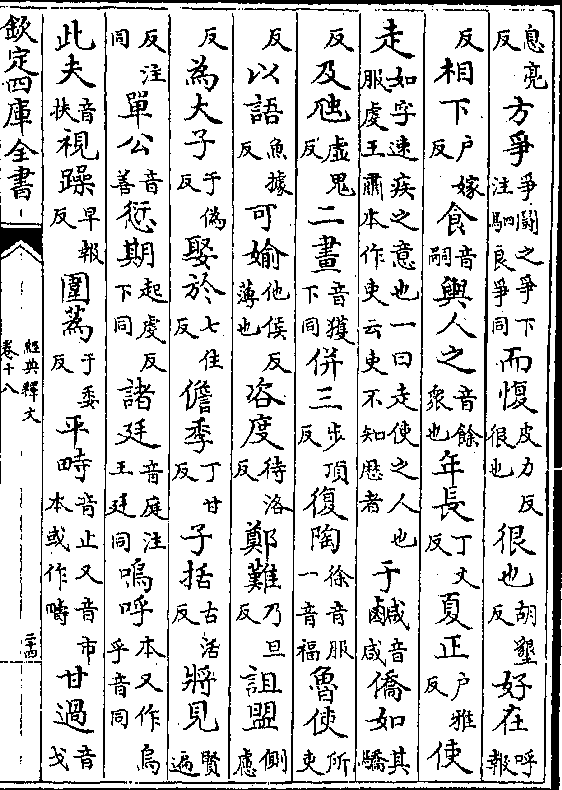 息亮反方爭爭鬬之爭下注駟良爭同而愎皮力反很也很也胡墾反好在呼報
反相下戶嫁反食音嗣輿人之音餘衆也年長丁丈反夏正戶雅反使
走如字速疾之意也一曰走使之人也服虔王肅本作吏云吏不知歴者于鹹音咸僑如其驕
反及虺虛鬼反二畫音獲下同併三步頂反復陶徐音服一音福魯使所吏
反以語魚據反可媮他侯反薄也咨度待洛反鄭難乃旦反詛盟側慮
反為大子于偽反娶於七住反儋季丁甘反子括古活反將見賢遍
反注同單公音善愆期起虔反下同諸廷音庭注王廷同嗚呼本又作烏乎音同
此夫音扶視躁早報反圍蒍于委反平畤音止又音市本或作疇甘過音戈
欽定四庫全書
經典釋文
卷十八